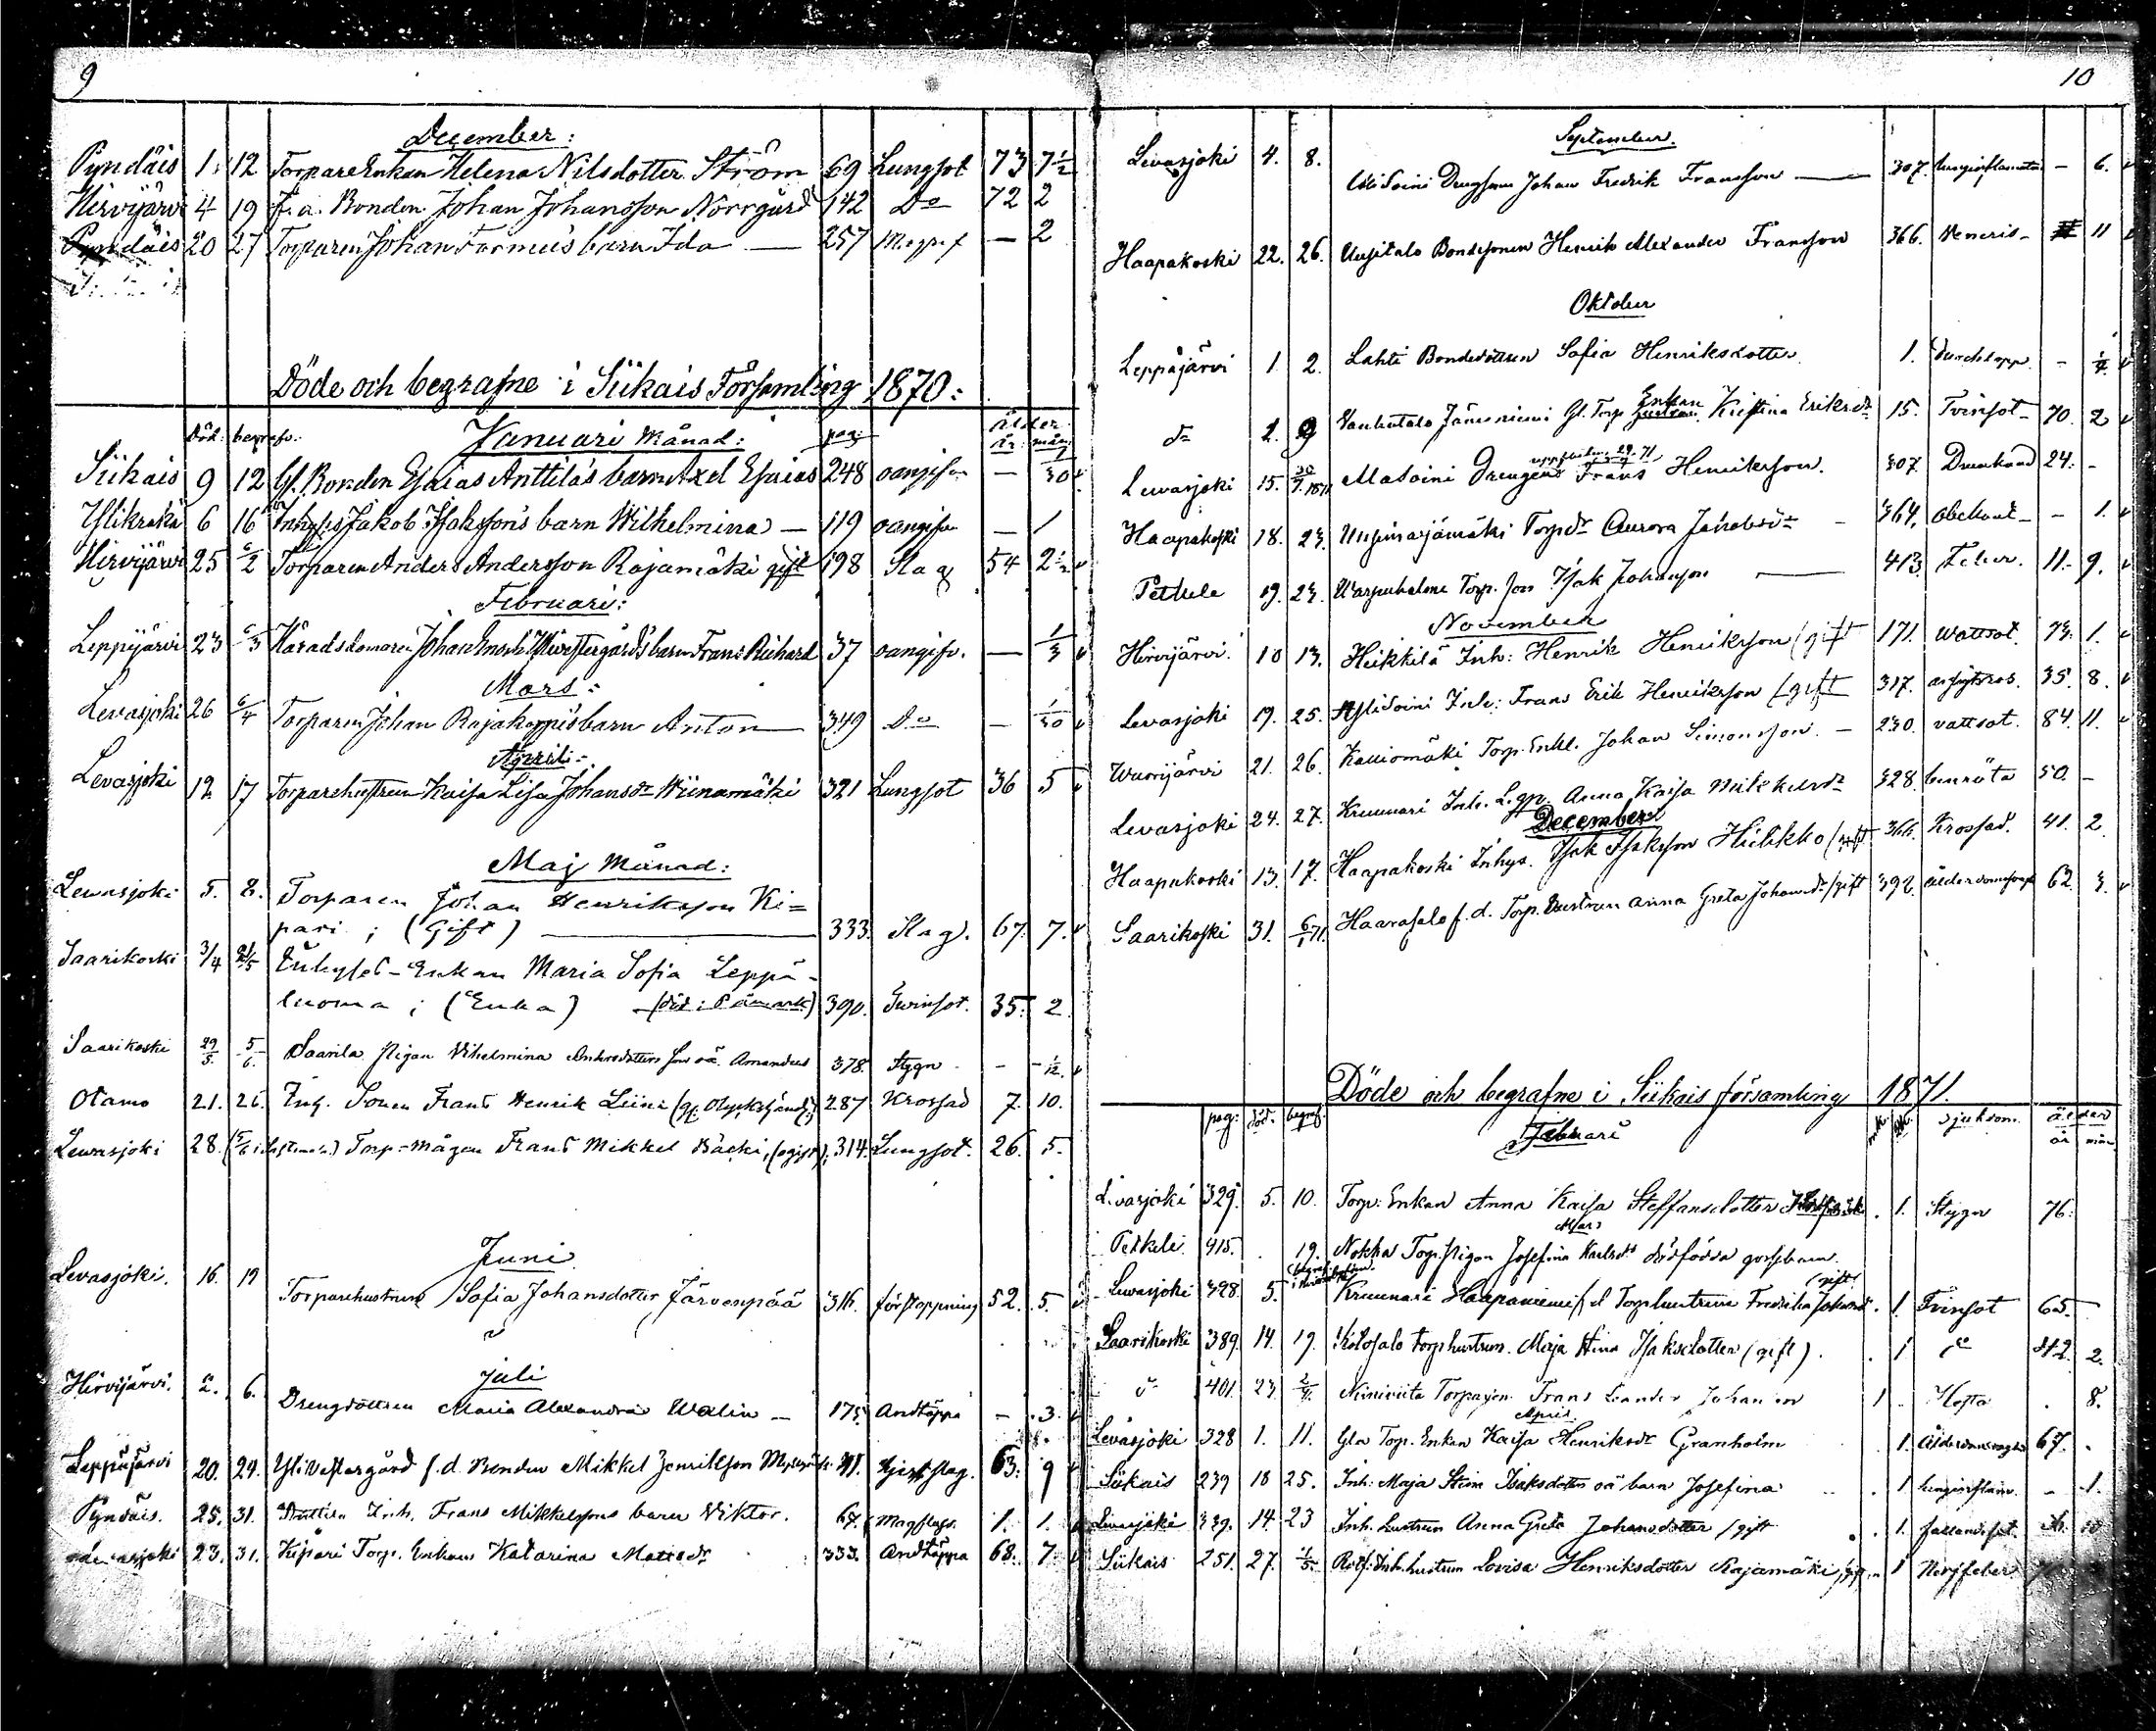 9
December:
Pyndäis 1. 12 Torpare Enkan Helena Nilsdotter Ström 69 Lungsot 73 7½
Hirvijärvi 4 19 f.a. Bonden Johan Johansson Norrgård 142 Do 72 2
Pyndäis 20 27 Torparen Johan barn Ida — 257 — 2
Döde och begrafne i Siikais Församling 1870:
död: begrafn. Januari Månad: pag: ålder år: mån
Siikais 9 12 Gl. Bonden Esaias Anttila's barn Axel Esaias 248 oangifv. — 1/30
16 Inhyses Jakob Isaksson's barn Wilhelmina — 119 oangifv — 1
Hirvijärvi 25 6/2 Torparen Anders Andersson Rajamäki gift 198 Slag 54 2½
Februari:
Leppijärvi 23 6/3 Häradsdomaren Johan Enoch barn Frans Richard 37 oangifv. — 1/3
Mars:
Levasjoki 26 6/4 Torparen Johan Rajakoppis barn Anton 349 Do — 1/30
April:
Levasjoki 12 17 Torparehustrun Kaisa Lisa Johansdr Wiinamäki 321 Lungsot 36 5
Maj Månad:
Lewasjoki 5. 8. Torparen Johan Henriksson Ki=
pari; (Gift) 333. Slag. 67. 7.
Saarikoski 3/4 Inhyses-Enkan Maria Sofia Leppä-
luoma; (Enka) (död i Påmark) 390. Twinsot. 35. 2
Saarikoski 29/5. 5/6. Saarila Pigan Vilhelmina Andersdotters son oä. Amandus 378. Stygn - - 1/12.
Otamo 21. 26. Inh. Sonen Frans Henrik Liina 287 Krossad 7. 10.
Lewasjoki 28. Torp=mågen Frans Mikkel Bäcki, (ogift); 314. Lungsot. 26. 5.
Juni
Levasjoki. 16. 19 Torparehustrun Sofia Johansdotter Järvenpää 316. förstoppning 52. 5.
Juli
Hirvijärvi. 2. 6. Drengdottren Maria Alexandra Walin — 175. Andtäppa — 3.
Leppijärvi 20. 24. Yliwestergård f.d. Bonden Mikkel Henriksson 41. 63. 9
Pyndäis. 25. 31. Anttila Inh. Frans Mikkelssons barn Viktor. 67. 1. 1.
Levasjoki 23. 31. Kipari Torp. Enkan Katarina Mattsdr 333. Andtäppa 68. 7.
10
September.
Levasjoki 4. 8. Drengsonen Johan Fredrik Fransson — 307. lunginflamation — 6.
Haapakoski 22. 26. Uusitalo Bondesonen Henrik Alexander Fransson 366. Veneris - 11
Oktober
Leppäjärvi 1. 2. Lahti Bondedottren Sofia Henriksdotter. 1. Durchlopp. -
do 2. 9 Vanhatalo Jämsniemi Gl. Torp. Enkan Kristina Eriksdr 15. Tvinsot - 70. 2
Lewasjoki 15. Alasoini Drengen Frans Henriksson. 307 Drunknad 24. -
Haapakoski 18. 23. Torpdr Aurora Jakobsdr - 364. obekant - - 1.
Petkele 19. 23. Torp. son Isak Johansson — 413. Feber. 11. 9.
November
Hirvijärvi. 10 13. Heikkilä Inh: Henrik Henriksson (gift 171. wattsot. 73. 1.
Levasjoki 19. 25. Ylisoini Inh: Frans Erik Henriksson (gift 317. ansigtsros. 35. 8.
21. 26. Kalliomäki Torp. Enkl. Johan Simonsson. — 230. vattsot. 84. 11.
Levasjoki 24. 27. Kruunari Inh. Anna Kaisa Mikkelsdr 328. benröta 50. -
December
Haapakoski 13. 17. Haapakoski Inhys. Isak Isaksson Hiilikko (gift 366. Krossad. 41. 2.
Saarikoski 31. 6/1 71. Haarasalo f.d. Torp. hustrun Anna Greta Johansdr (gift 392. ålderdomssvagh 62. 3.
Döde och begrafne i Siikais församling 1871.
pag: död. begraf. mk. qk. sjukdom. ålder år mån.
Februari
Levasjoki 329. 5. 10. Torp. Enkan Anna Kaisa Steffansdotter . 1. Stygn 76.
Mars
Petkele. 415. . 19. Nokka Torp. Pigan Josefina Karlsdrs dödfödda gossebarn.
Lewasjoki 328. 5. Kruunari Haapaniemi f d Torphustrun Fredrika Johansdr (gift) . 1. Tvinsot 65.
Saarikoski 389. 14. 19. Kotosalo torphustrun. Maja Stina Isaksdotter (gift). . 1 do 42. 2.
do 401. 23. 2/4. Niiniviita Torparson Frans Leander Johansson 1 . Hosta . 8.
April.
Levasjoki 328 1. 11. Gla Torp. Enkan Kaisa Henriksdr Granholm . 1. Ålderdomssvaghet 67. .
Siikais 239 18 25. Inh: Maja Stina Isaksdotters oä barn Josefina . 1 lunginflam. - 1.
Levasjoki 339. 14. 23 Inh. hustrun Anna Greta Johansdotter (gift . 1. fallandesot.
Siikais 251. 27. 1/5. Inh. hustrun Lovisa Henriksdotter Rajamäki, gift 1 Nervfeber